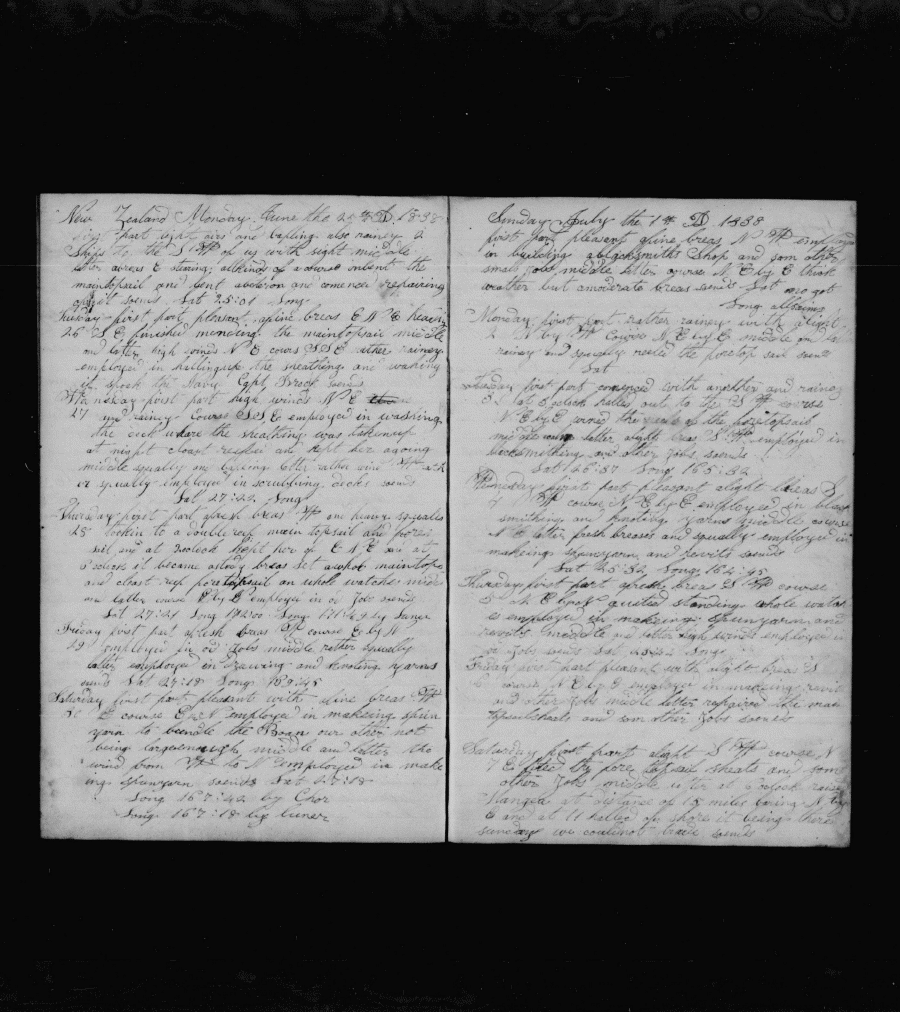 New Zealand Monday June the 25 th D 1838
first part light airs and bafling also rainey 2
Ships to the S W of us with light middle
letter
maintopsail and bent and comenced repairing
Lat 25:01 Long
Tuesday first part pleasant afine breas E N E heavin
26 S E finished mending the maintopsail middle
and latter high winds N E cours S S E rather rainey
employed in hallingup the sheathing and washing
it spock the Navy Capt Brock soends
Wanesday first part high winds N E
27 and rainey Course S S E employed in washing
the deck whare the sheathing was takenup
at night closet reefed and kept her agoing
middle squally and latter rather
or squally employed in scrubbing decks soends
Lat 27:29 Long
Thursday first part afresh breas W and heavy squales
28 tookin to a doublereef main topsail and fore
sail and at 2oclock kept her of E N E and at
oclock it became astidy breas set awhole maintops
and closet reef foretopsail an whole watches midd
and latter course E by E employed in od Jobs soends
Lat 27:21 Long 172:00 Long 171:49 by luner
Friday first part afresh breas W course E by N
29 employed in od Jobs middle rather squally
latter employed in drawing and knoting yarns
sends Lat 27:18 Long 169:45
Saturday first part pleasant with afine breas W
30 E course E employed in makeing spun
yarn to beendle the Boan our other not
being largeenough middle and latter the
wind from W to N employed in make
ing spunyarn soends Lat 27:18
Long 167:42 by Chor
Long 167:18 by luner
Sunday July the 1 th D 1838
first part pleasant afine breas N W employed
in building ablocksmiths shop and som other
small Jobs middle latter course N E by E thick
weather but amoderate breas soends Lat no got
Long allsoino
Monday first part rather rainey with alight
2 N by W Course N E by E middle and lat
rainey and squally reefed the foretop sail soends
Lat
Tuesday first part comenced with another and rainey
3 at 8 oclock halled out to the S W
N E by E of the foretopsail
middle and latter alight breas S W employed in
blocksmithing and other Jobs soends
Lat 26:37 Long 165:32
Wenesday first part pleasant alight breas S
4 W course N E by E employed in black
smithing and knoting yarns middle course
N E latter fresh breeses and squally employed in
makeing spunyarn and revits soends
Lat 25:32 Long 164:45
Thursday first part afresh breas S W course
5 at E quited standing whole watch
es employed in makeing spunyarn and
revits middle and latter high winds employed in
od Jobs soends Lat Long
Friday first part pleasant with alight breas S
6 course N E by E employed in makeing revits
and other Jobs middle latter repaired the main
topsailsheats and som other Jobs soends
Saturday first part alight S W course N
7 E fitted the fore topsail sheats and som
other Jobs middle at oclock raised
at distance of 15 miles baring N by
E and at 11 halled of shore it being there
sunday we couldnot trade soends